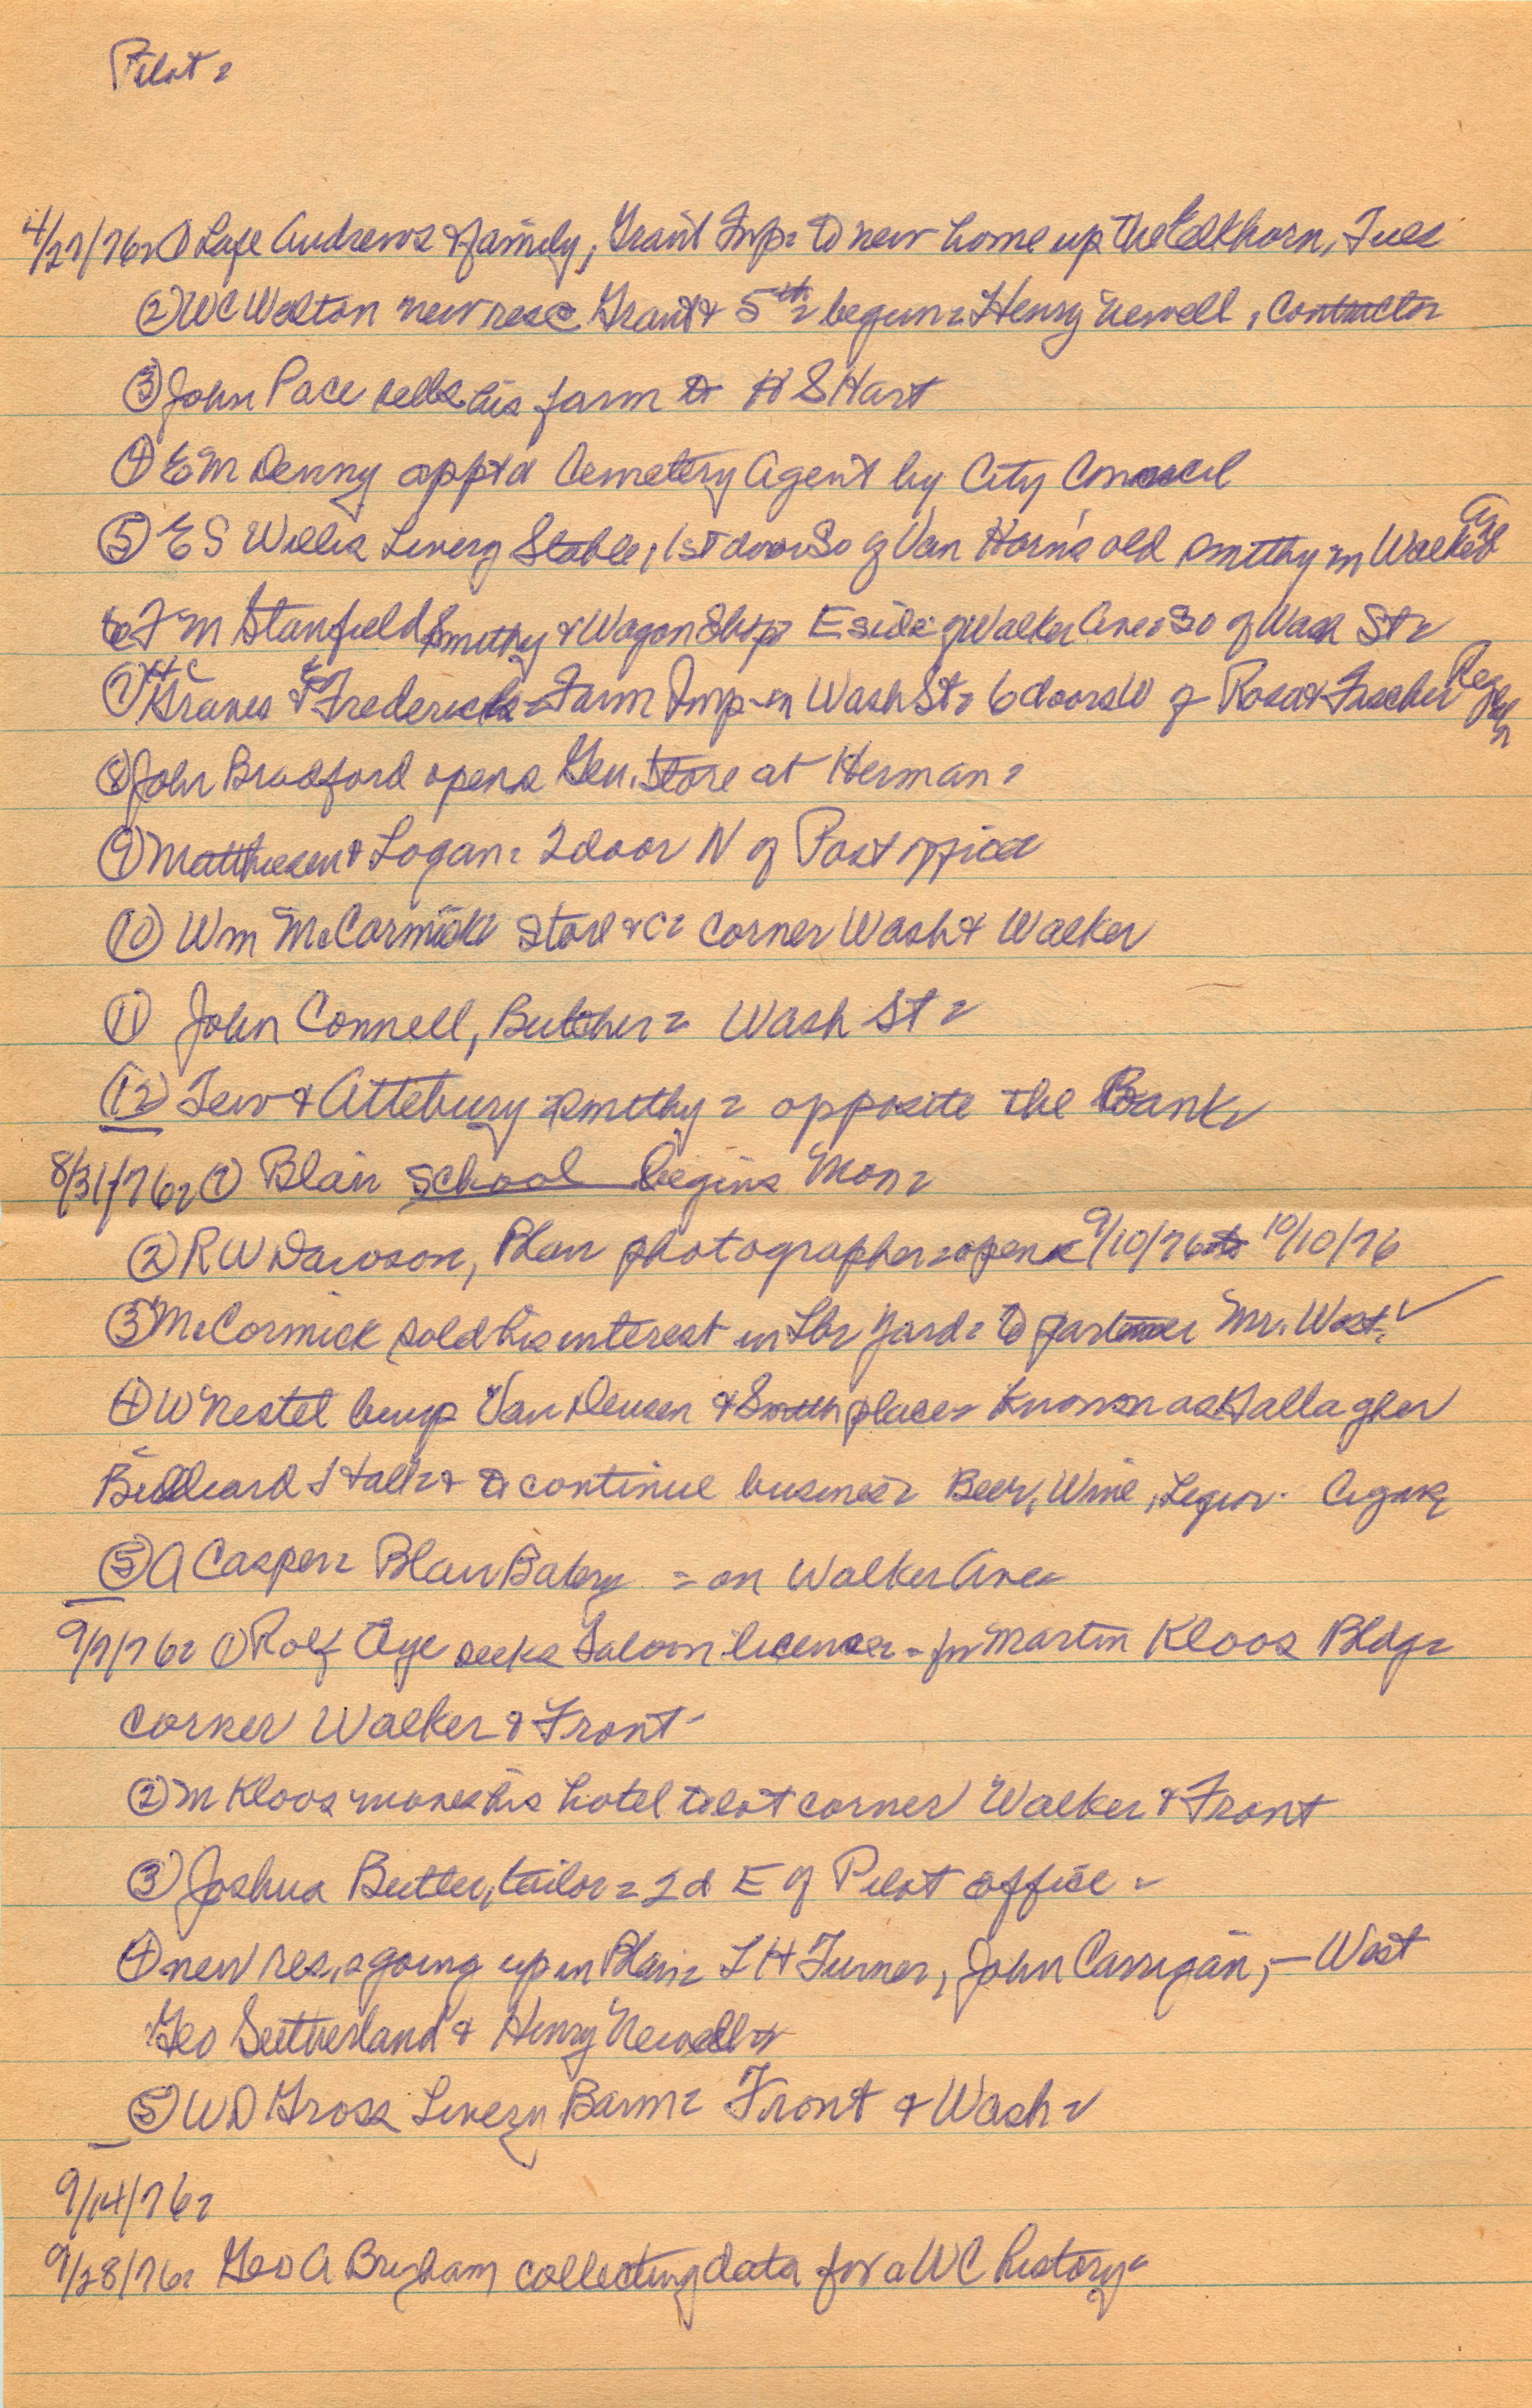 Pilot =
4/27/76 = ① Lafe Andrews & family, Grant Imp = to new home up the Elkhorn, Tues
② WC Walton new res = Grant & 5th = begun = Henry Newell, Contractor
③ John Pace sells his farm to H S Hart
④ E M Denny apptd Cemetery Agent by City Council
⑤ E S Willis Livery Stable, 1st door So of Van Horn's old smithy on Walker Av
6 F M Stanfield Smithy & Wagon Shop E side of Walker Ave = So of Wash St =
⑦ H C Graves & Fredericks = Farm Imp - on Wash St = 6 doors W of Rosa & Fascher
⑧ John Bradford opens Gen. Store at Herman =
⑨ Matthiesen & Logan = 2 door N of Post office
⑩ Wm McCormick Store &c = corner Wash & Walker
⑪ John Connell, Butcher = Wash St =
⑫ Tew & Attebury = smithy = opposite the Bank
8/31/76 = ① Blair school begins Mon =
② R W Dawson, Blair photographer = open 9/10/76 to 10/10/76
③ McCormick sold his interest in Lbr Yard = to partner Mr. West. ✓
④ W Nestel buys Van Deusen & Smith place = known as Gallagher
Billiard Hall = & to continue business = Beer, Wine, Liquor. Cigars
⑤ A Casper = Blair Bakery = on Walker Ave =
9/7/76 = ① Rolf Aye seeks Saloon license - for Martin Kloos Bldg =
corner Walker & Front -
② M Kloos moves his hotel to lot corner Walker & Front
③ Joshua Butler, tailor = 2d E of Pilot office -
④ new res,s going up in Blair = L H Turner, John Carrigan, - West
Geo Sutherland & Henry Newell
⑤ W D Gross Livery Barn = Front & Wash =
9/14/76 =
9/28/76 = Geo A Brigham collecting data for a WC history =